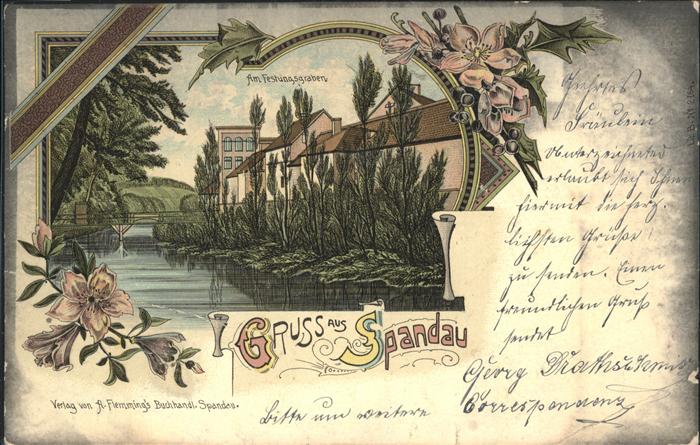 Am Festungsgraben
Geehrtes
Fräulein
Obenterzeichneter
erlaubt sich Ihnen
hiermit die herz-
lichsten Grüße
zu senden. Einen
freundlichen Gruß
sendet
Georg
Correspondenz
Gruss aus Spandau
Verlag von A. Flemming's Buchhandl. Spandau.
Bitte um weitere